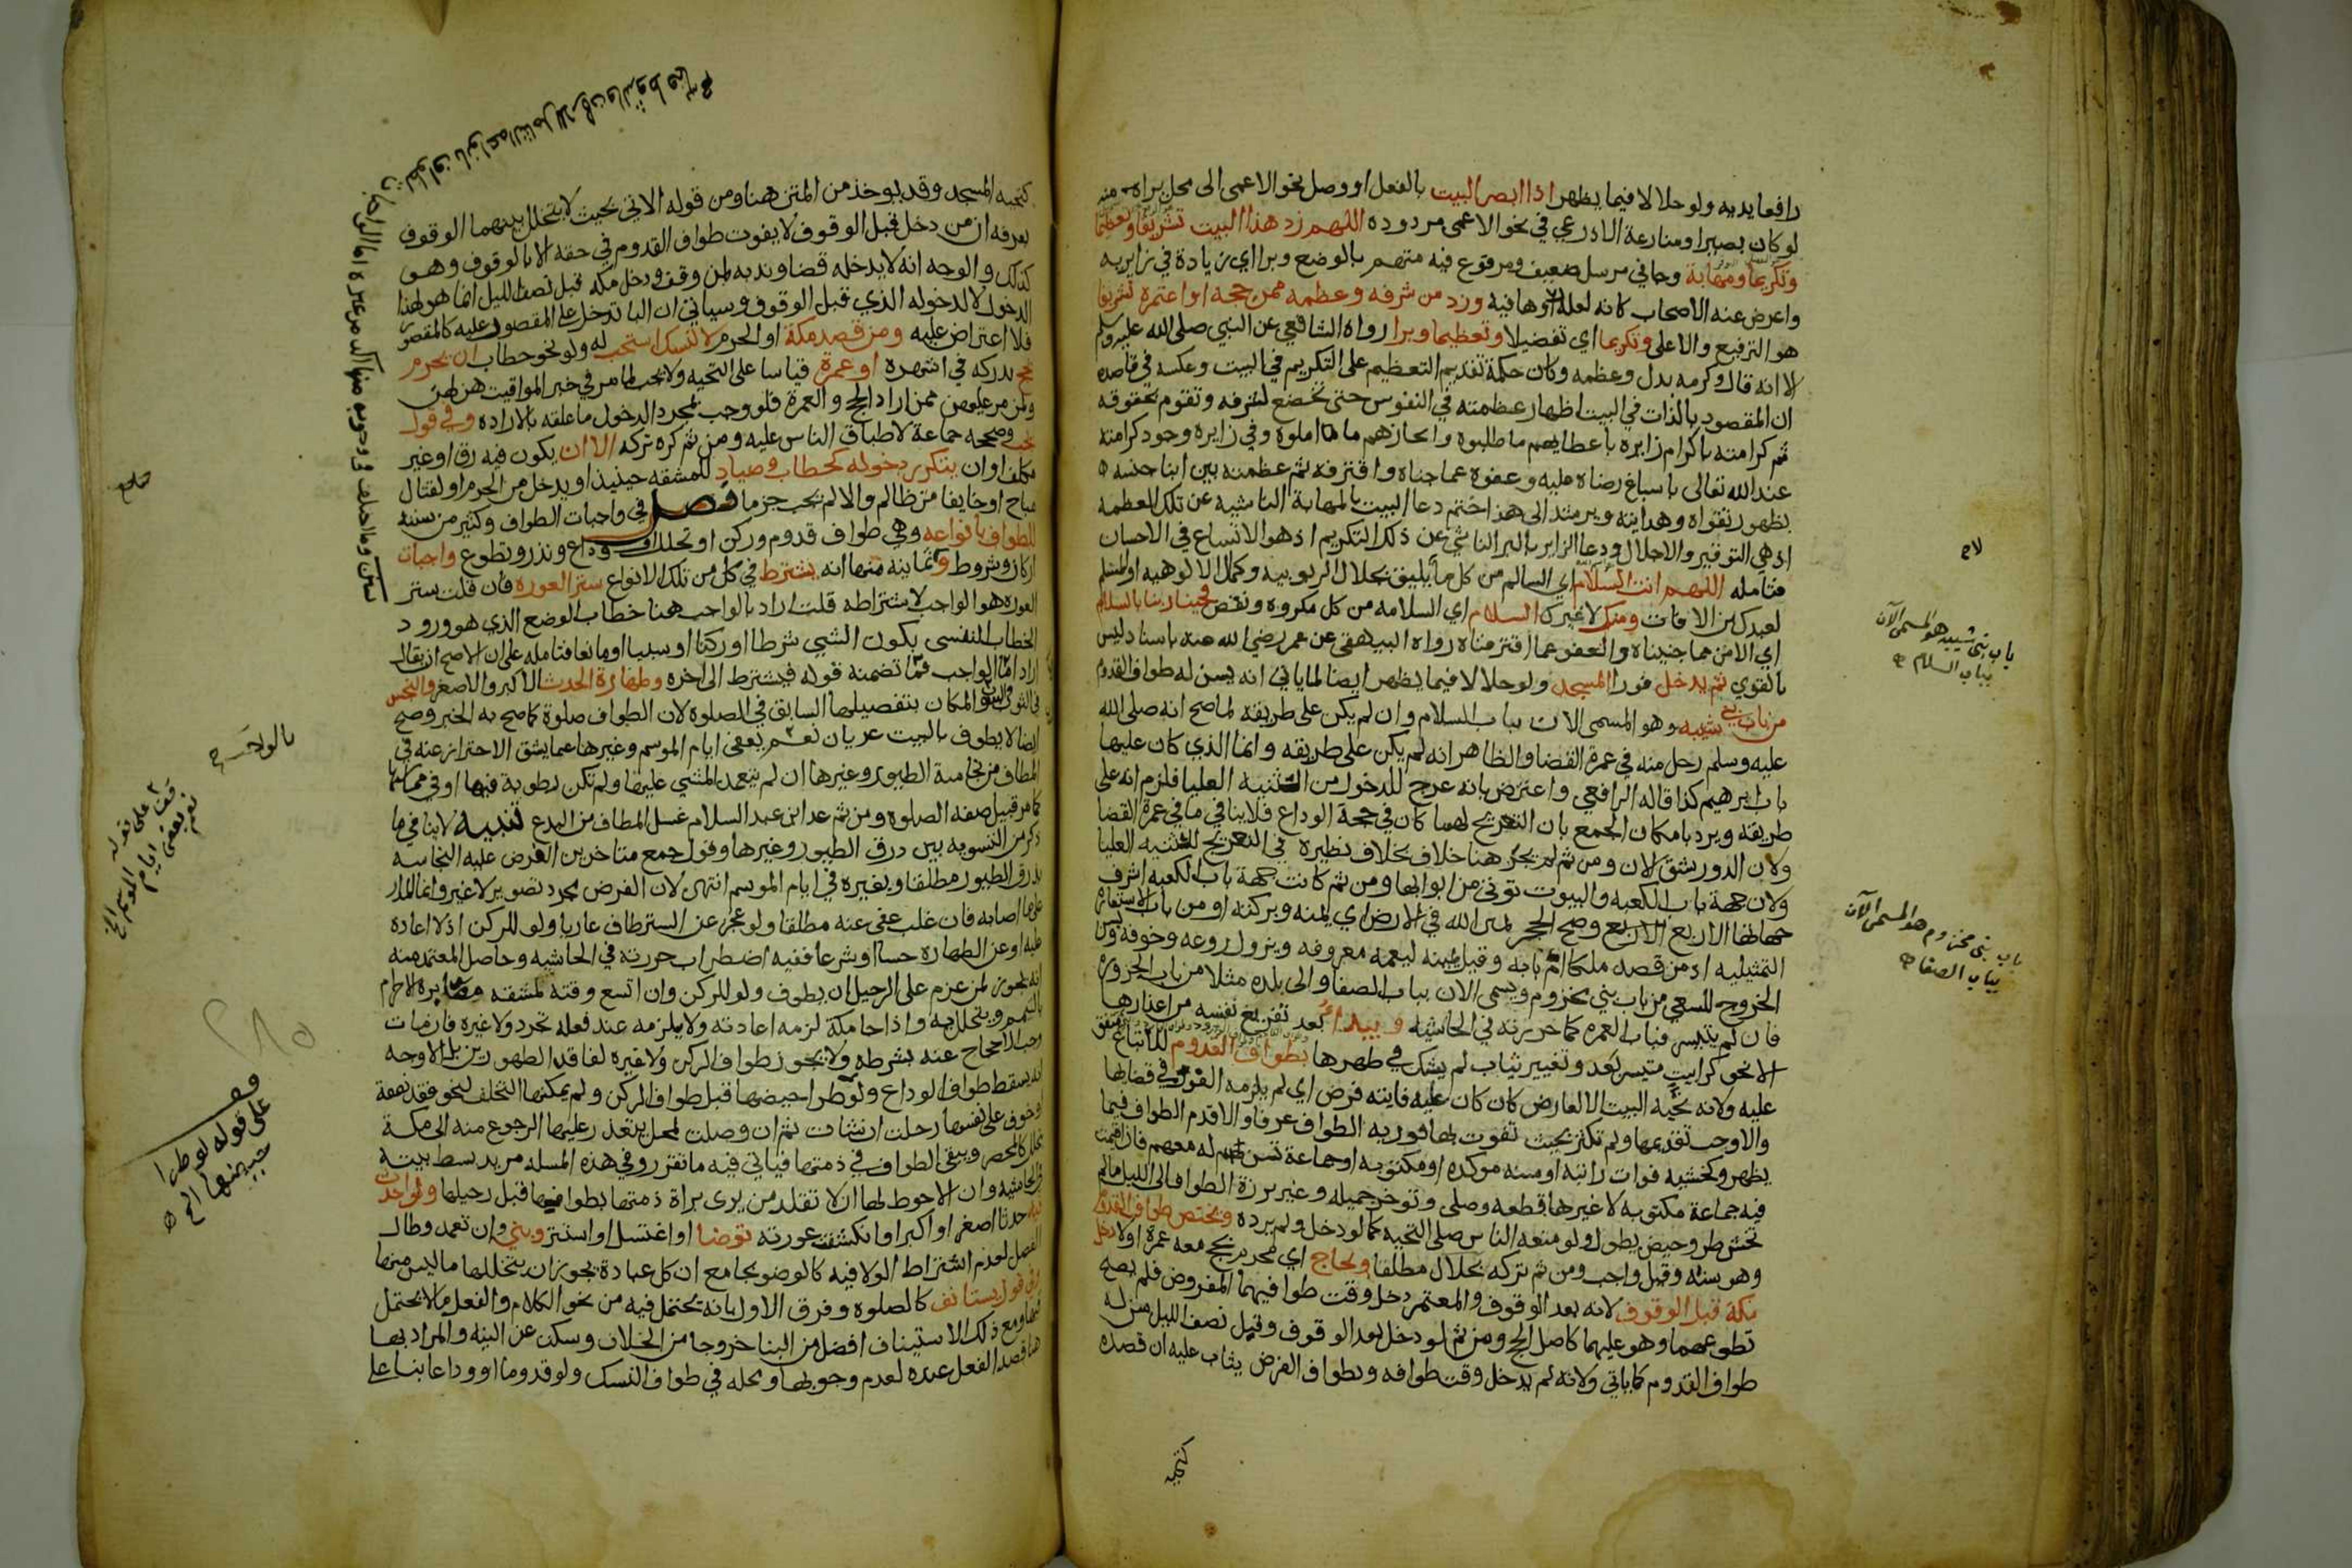 رافعا يديه ولو حلالا فيما يظهر اذا ابصر البيت بالفعل او وصل نحو الاعمى الى محل يراه منه
لو كان بصيرا ومنازعة الاذرعي في نحو الاعمى مردودة اللهم زد هذا البيت تشريفا وتعظيما
وتكريما ومهابة وجا في مرسل ضعيف ومرفوع فيه متهم بالوضع وبرا اي زيادة في زايريه
واعرض عنه الاصحاب كانه لعله اوهافيه وزد من شرفه وعظمه ممن حجه او اعتمره تشريفا
هو الترفيع والاعلى وتكريما اي تفضيلا وتعظيما وبرا رواه الشافعي عن النبي صلى الله عليه وسلم
الا انه قال وكرمه بدل وعظمه وكان حكمة تقديم التعظيم على التكريم في البيت وعكسه في قاصده
ان المقصود بالذات في البيت اظهار عظمته في النفوس حتى تخضع لشرفه وتقوم بحقوقه
ثم كرامته باكرام زايره باعطايهم ما طلبوه وانجازهم ما املوه وفي زايره وجود كرامته
عند الله تعالى باسباغ رضاه عليه وعفوه عما جناه واقترفه ثم عظمته بين ابنا جنسه
بظهور تقواه وهدايته ويرشد الى هذا ختم دعا البيت بالمهابة الناشيه عن تلك العظمه
اذ هي التوقير والاجلال ودعا الزاير بالبر الناشي عن ذلك التكريم اذ هو الاتساع في الاحسان
فتامله اللهم انت السلام اي السالم من كل ما لا يليق بجلال الربوبيه وكمال الالوهيه او المسلم
لعبيدك من الافات ومنك لا غيرك السلام اي السلامه من كل مكروه ونقص فحينا ربنا بالسلام
اي الامن مما جنيناه والعفو عما اقترفناه رواه البيهقي عن عمر رضي الله عنه باسناد ليس
بالقوي ثم يدخل فورا المسجد ولو حلالا فيما يظهر ايضا لما ياتي انه يسن له طواف القدوم
من باب بني شيبه وهو المسمى الان بباب السلام وان لم يكن على طريقه لما صح انه صلى الله
عليه وسلم دخل منه في عمرة القضا والظاهر انه لم يكن على طريقه وانما الذي كان عليها
باب ابرهيم كذا قاله الرافعي واعترض بانه عرج للدخول من الثنيه العليا فلزم انه على
طريقه ويرد بامكان الجمع بان التعريج لها كان في حجة الوداع فلا ينافي ما في عمرة القضا
ولان الدور يشق لان ومن ثم لم يجر هنا خلاف بخلاف نظيره في التعريج للثنيه العليا
ولان جهة باب الكعبه والبيوت توتى من ابوابها ومن ثم كانت جهة باب الكعبه اشرف
جهاتها الاربع وصح الحجر يمين الله في الارض اي يمنه وبركته او من باب الاستعارة
التمثيليه اذ من قصد ملكا ام بابه وقبل يمينه ليعمه معروفه ويزول روعه وخوفه ويسن
الخروج للسعي من باب بني مخزوم ويسمى الان بباب الصفا والى بلده مثلا من باب الحزورة
فان لم يتيسر فباب العمره كما حررته في الحاشيه ويبدا بعد تفريغ نفسه من اعذارها
الا نحو كرا بيت متيسر بعد وتغيير ثياب لم يشك في طهرها بطواف القدوم للاتباع متفق
عليه ولانه تحية البيت الا لعارض كان كان عليه فايته فرض اي لم يلزمه الفور في قضايها
والا وجب تقديمها ولم تكثر بحيث تفوت بها فوريه الطواف عرفا والا قدم الطواف فيما
يظهر وكخشيه فوات راتبة او سنه موكده او مكتوبه او جماعة تسن له معهم فان اقيمت
فيه جماعة مكتوبه لا غيرها قطعه وصلى وتوخر جميله وغير برزة الطواف الى الليل ما لم
تخش طرو حيض يطول ولو منعه الناس صلى التحيه كما لو دخل ولم يرده ويختص طواف القدوم
وهو سنه وقيل واجب ومن ثم كره تركه بحلال مطلقا وبحاج اي محرم بحج معه عمرة او لا دخل
مكة قبل الوقوف لانه بعد الوقوف والمعتمر دخل وقت طوافيهما المفروض فلم يصح
تطوعهما وهو عليهما كاصل الحج ومن ثم لو دخل بعد الوقوف وقبل نصف الليل سن له
طواف القدوم كما ياتي ولانه لم يدخل وقت طوافه وبطواف الفرض يثاب عليه ان قصده
كتحية
لاح
باب بني شيبه هو المسمى الآن
بباب السلام
باب بني مخزوم هو المسمى الآن
بباب الصفا
كتحية المسجد وقد يوخذ من المتن هنا ومن قوله الاتي بحيث لا يتخلل بينهما الوقوف
بعرفه ان من دخل قبل الوقوف لا يفوت طواف القدوم في حقه الا بالوقوف وهو
كذلك والوجه انه لا يدخله قضا وندبه لمن وقف ودخل مكة قبل نصف الليل انما هو لهذا
الدخول لا لدخوله الذي قبل الوقوف وسياتي ان البا تدخل على المقصور عليه كالمقصور
فلا اعتراض عليه ومن قصد مكة او الحرم لا لنسك استحب له ولو نحو حطاب ان يحرم
بحج يدركه في اشهره او عمرة قياسا على التحيه ولا يجب لما مر في خبر المواقيت هن لهن
ولمن مر عليهن ممن اراد الحج والعمرة فلو وجب بمجرد الدخول ما علقه بالاراده وفي قول
يجب وصححه جماعة لاطباق الناس عليه ومن ثم كره تركه الا ان يكون فيه رق او غير
مكلف او ان يتكرر دخوله كحطاب وصياد للمشقه حينيذ او يدخل من الحرم او لقتال
مباح او خايفا من ظالم والا لم يجب جزما فصل في واجبات الطواف وكثير من سننه
للطواف بانواعه وهي طواف قدوم وركن او تحلل او وداع ونذر وتطوع واجبات
اركان وشروط وثمانيه منها انه يشترط في كل من تلك الانواع ستر العورة فان قلت ستر
العوره هو الواجب لا اشتراطه قلت اراد بالواجب هنا خطاب الوضع الذي هو ورود
الخطاب النفسي بكون الشي شرطا او ركنا او سببا او مانعا فتامله على ان الاصح ان يقال
اراد اما الواجب فما تضمنه قوله فيشترط الى اخره وطهارة الحدث الاكبر والاصغر والنجس
في الثوب والبدن والمكان بتفصيلها السابق في الصلوة لان الطواف صلوة كما صح به الخبر وصح
ايضا لا يطوف بالبيت عريان نعم يعفى ايام الموسم وغيرها عما يشق الاحتراز عنه في
المطاف من نجاسة الطيور وغيرها ان لم يتعمد المشي عليها ولم تكن رطوبة فيها او في مماسها
كما مر قبيل صفة الصلوة ومن ثم عد ابن عبد السلام غسل المطاف من البدع تنبيه لا ينافي ما
ذكر من التسويه بين درق الطيور وغيرها وقول جمع متاخرين الفرض عليه النجاسه
بذرق الطيور مطلقا وبغيره في ايام الموسم انتهى لان الفرض مجرد تصوير لا غير وانما المدار
على ما اصابه فان غلب عفي عنه مطلقا ولو عجز عن الستر طاف عاريا ولو للركن اذ لا اعادة
عليه او عن الطهارة حسا او شرعا ففيه اضطراب حررته في الحاشيه وحاصل المعتمد منه
انه يجوز لمن عزم على الرحيل ان يطوف ولو للركن وان اتسع وقته لمشقه مصابرة الاحرام
بالتيمم ويتحلل به واذا جا مكة لزمه اعادته ولا يلزمه عند فعله تجرد ولا غيره فان مات
وجب الاحجاج عنه بشرطه ولا يجوز طواف الركن ولا غيره لفاقد الطهورين بل الاوجه
انه يسقط طواف الوداع ولو طرا حيضها قبل طواف الركن ولم يمكنها التخلف لنحو فقد نفقة
او خوف على نفسها رحلت ان شات ثم ان وصلت لمحل يتعذر عليها الرجوع منه الى مكة
تتحلل كالمحصر ويبقى الطواف في ذمتها فياتي فيه ما تقرر وفي هذه المسله مزيد بسط بينته
في الحاشيه وان الاحوط لها ان تقلد من يرى براة ذمتها بطوافها قبل رحيلها ولو احدث
فيه حدثا اصغر او اكبر او انكشفت عورته توضا او اغتسل او استتر وبنى وان تعمد وطال
الفصل لعدم اشتراط الولا فيه كالوضو بجامع ان كل عبادة يجوز ان يتخللها ما ليس منها
وفي قول يستانف كالصلوة وفرق الاول بانه يحتمل فيه من نحو الكلام والفعل ما لا يحتمل
فيها ومع ذلك الاستيناف افضل من البنا خروجا من الخلاف وسكت عن النيه والمراد بها
هنا قصد الفعل عنده لعدم وجوبها ومحله في طواف النسك ولو قدوما او وداعا بنا على
بالواجب
قف
على قوله
نعم يعفى ايام الموسم الخ
٢٨٥
قف
على قوله لو طرا
حيضها الخ